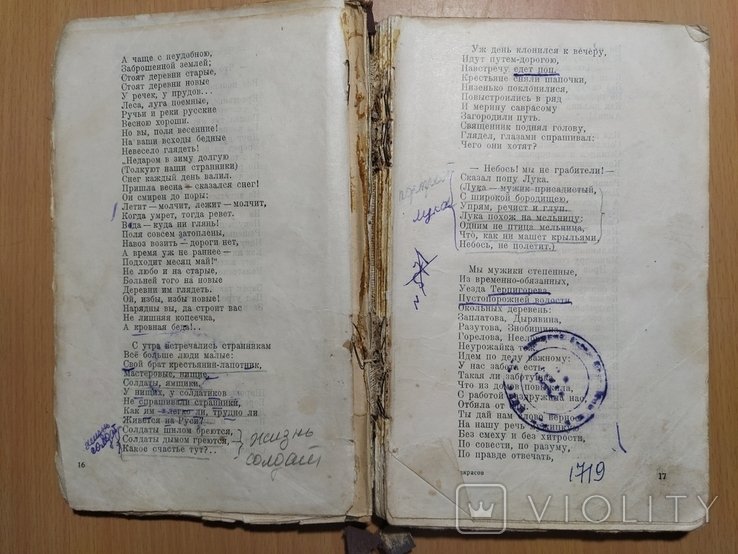 А чаще с неудобною,
Заброшенной землей;
Стоят деревни старые,
Стоят деревни новые
У речек, у прудов...
Леса, луга поемные,
Ручьи и реки русские
Весною хороши.
Но вы, поля весенние!
На ваши всходы бедные
Невесело глядеть!
„Недаром в зиму долгую
(Толкуют наши странники)
Снег каждый день валил.
Пришла весна — сказался снег!
Он смирен до поры:
Летит — молчит, лежит — молчит,
Когда умрет, тогда ревет.
Вода — куда ни глянь!
Поля совсем затоплены,
Навоз возить — дороги нет,
А время уж не раннее —
Подходит месяц май!"
Не любо и на старые,
Больней того на новые
Деревни им глядеть.
Ой, избы, избы новые!
Нарядны вы, да строит вас
Не лишняя копеечка,
А кровная беда!..
С утра встречались странникам
Всё больше люди малые:
Свой брат крестьянин-лапотник,
Мастеровые, нищие,
Солдаты, ямщики.
У нищих, у солдатиков
Не спрашивали странники,
Как им — легко ли, трудно ли
Живется на Руси?
Солдаты шилом бреются,
Солдаты дымом греются,
Какое счастье тут?..
жизнь
солдат
16
Уж день клонился к вечеру,
Идут путем-дорогою,
Навстречу едет поп.
Крестьяне сняли шапочки,
Низенько поклонилися,
Повыстроились в ряд
И мерину саврасому
Загородили путь.
Священник поднял голову,
Глядел, глазами спрашивал:
Чего они хотят?
— Небось! мы не грабители! —
Сказал попу Лука.
(Лука — мужик присадистый,
С широкой бородищею,
Упрям, речист и глуп.
Лука похож на мельницу:
Одним не птица мельница,
Что, как ни машет крыльями,
Небось, не полетит.)
портрет
Лука
Мы мужики степенные,
Из временно-обязанных,
Уезда Терпигорева,
Пустопорожней волости,
Окольных деревень:
Заплатова, Дырявина,
Разутова, Знобишина,
Горелова,
Неурожайка
Идем по делу важному:
У нас забота есть,
Такая ли забота,
Что из домов повыжила,
С работой раздружила нас,
Отбила от
Ты дай нам слово верное
На нашу речь
Без смеху и без хитрости,
По совести, по разуму,
По правде отвечать,
1719
17
VIOLITY